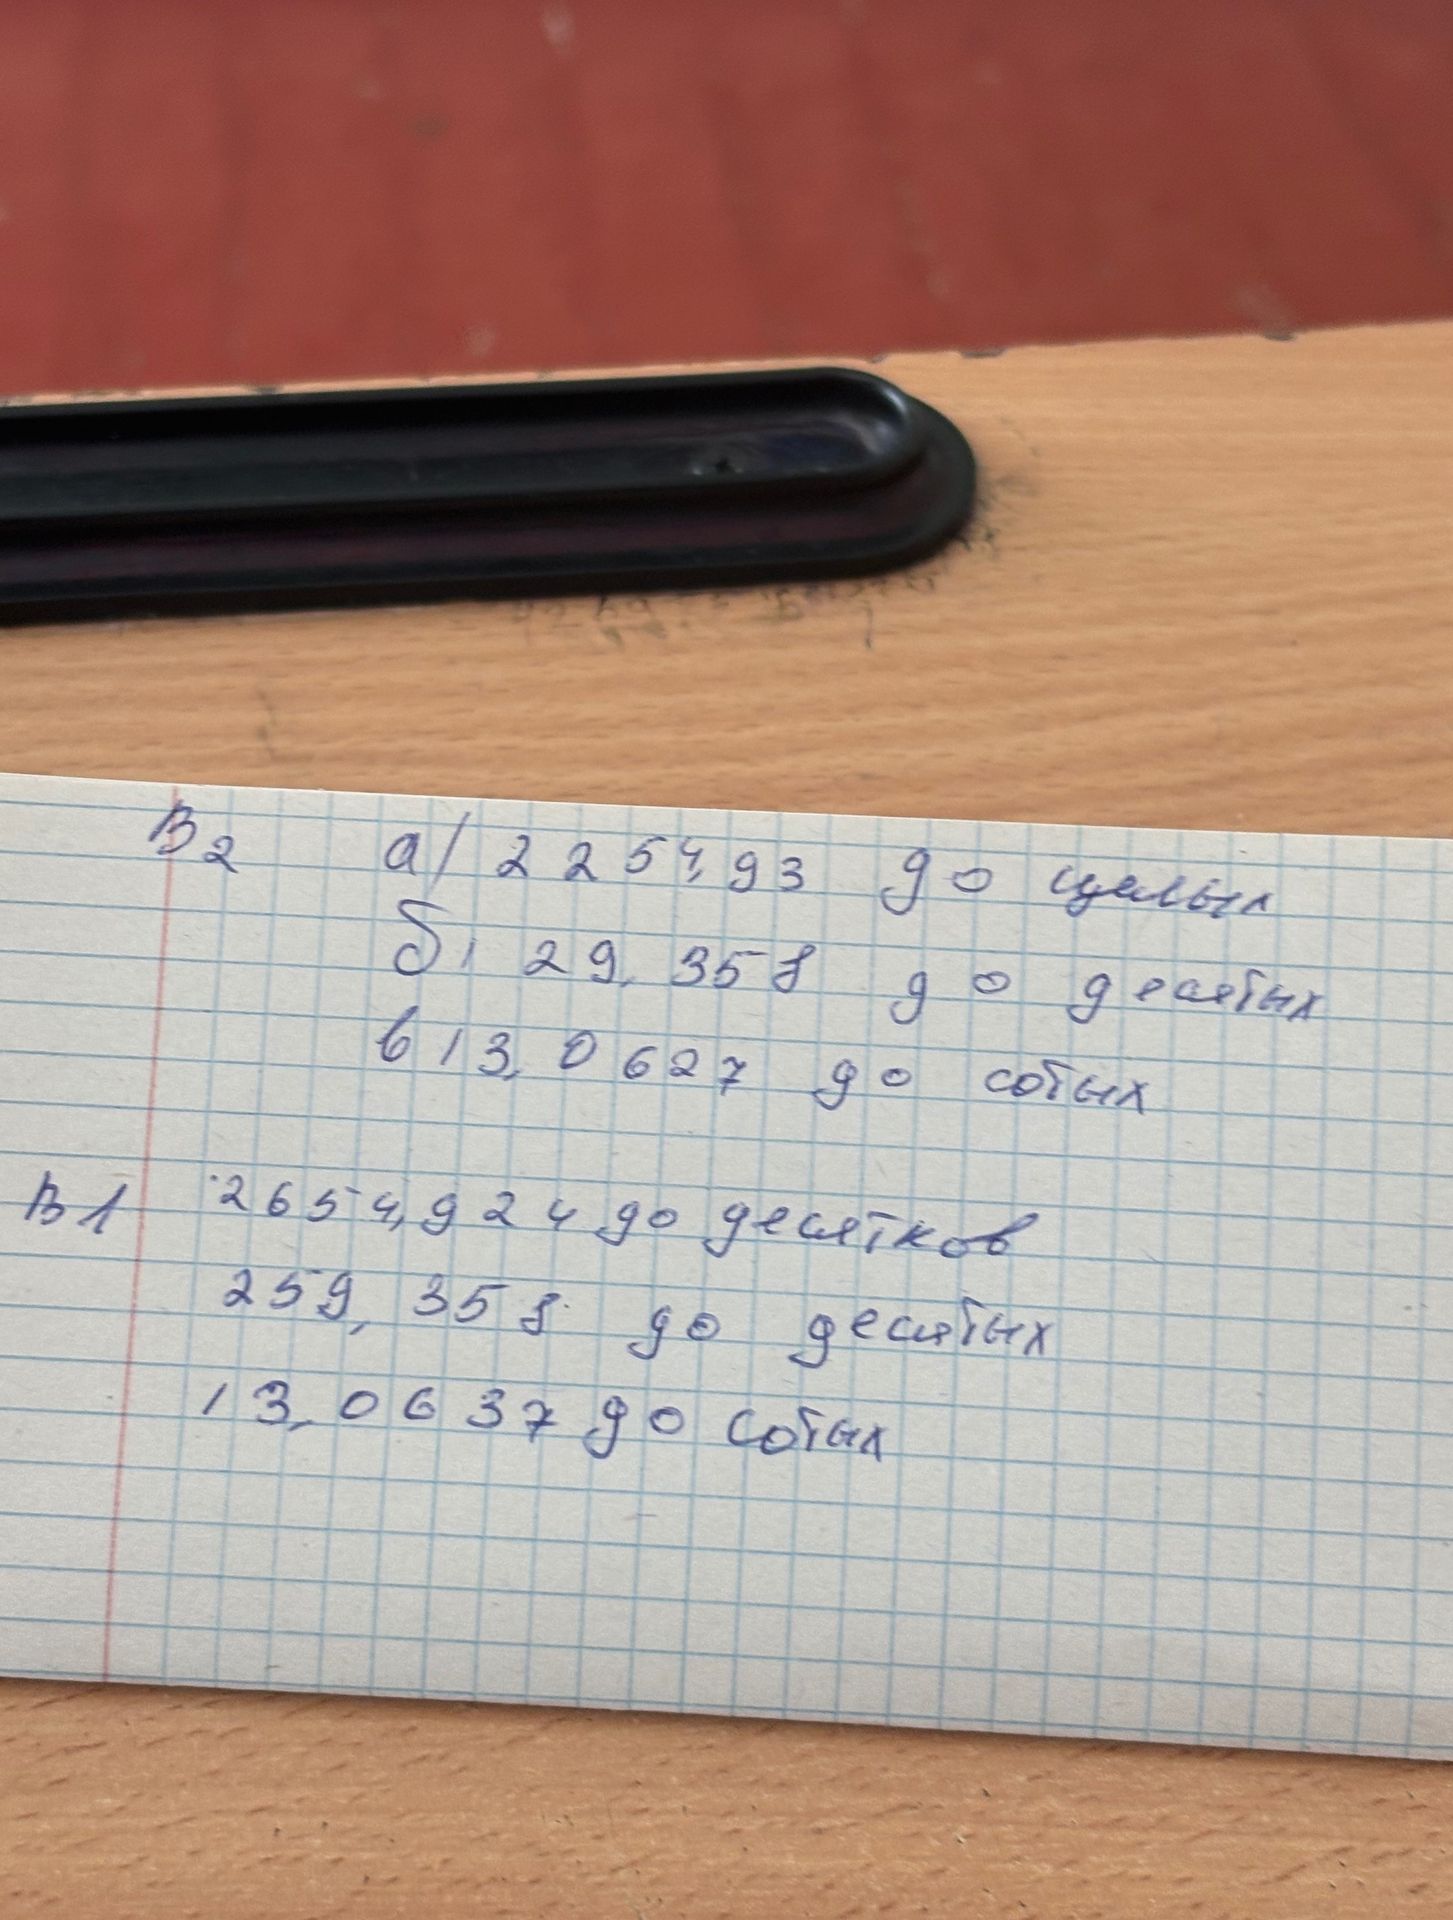 В2 а) 2254,93 до целых
б) 29,358 до десятых
в) 13,0627 до сотых
В1 2654,924 до десятков
259,358 до десятых
13,0637 до сотых